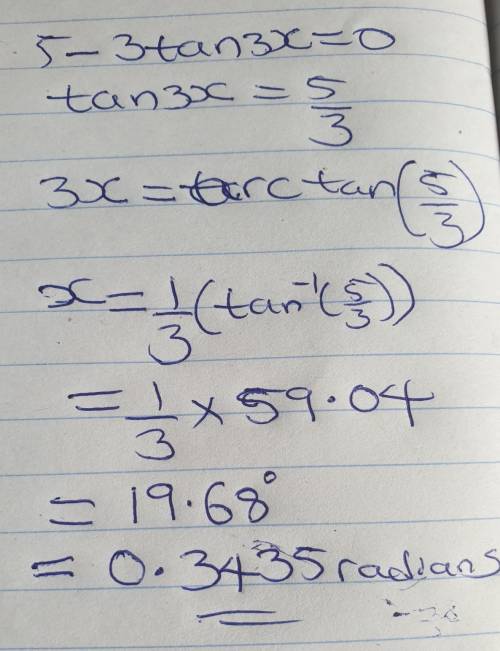 5 - 3tan3x = 0
tan3x = 5/3
3x = arctan(5/3)
x = 1/3(tan⁻¹(5/3))
= 1/3 × 59.04
= 19.68°
= 0.3435 radians